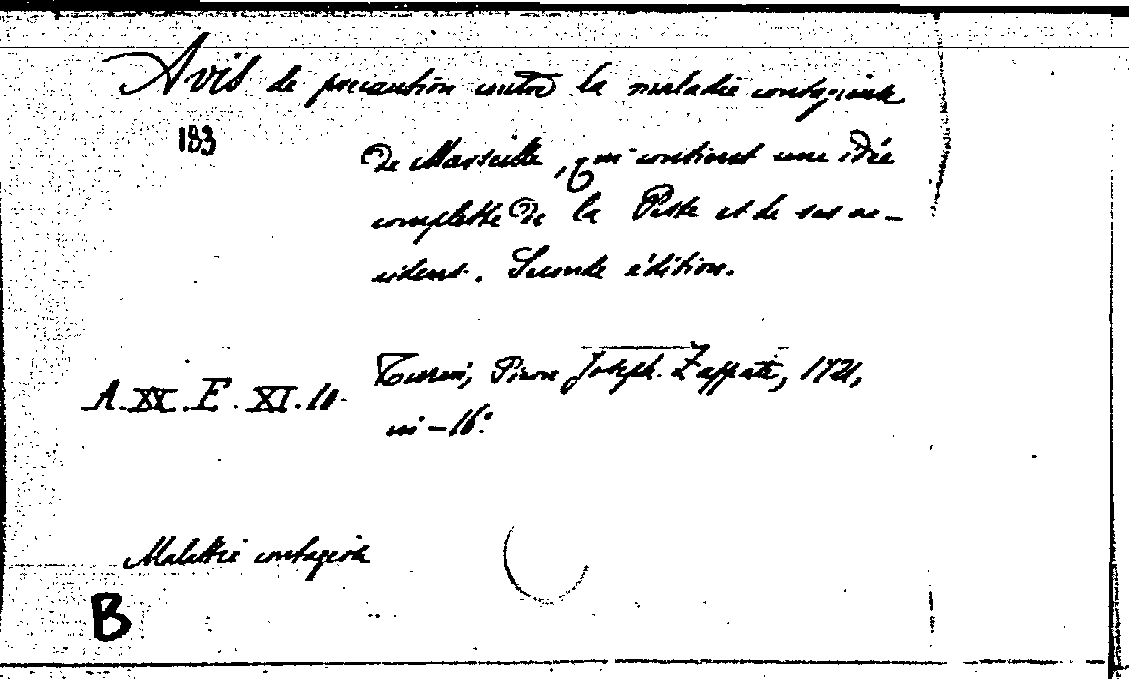 Avis de precaution contre la maladie contagieuse
193
de Marseille, qui contient une idée
complette de la Peste et de ses ac-
cidens. Seconde édition.
Turin, Pierre Joseph Zappate, 1721,
A. XX. E. XI. 10.
in-16°.
Malattie contagiose
B